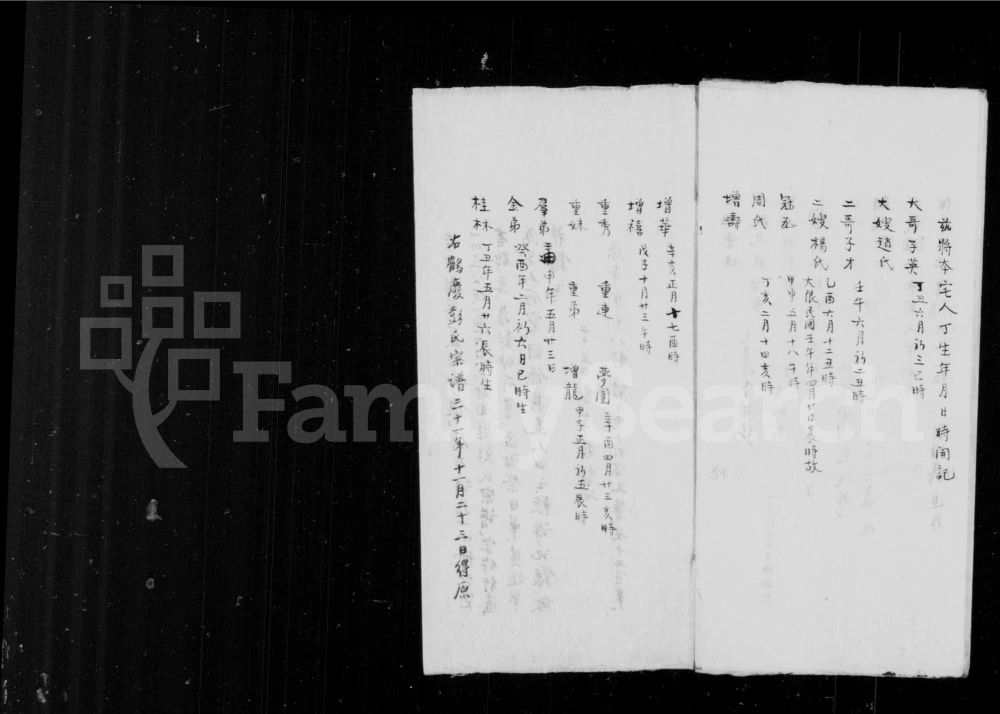 茲將本宅人丁生年月日時開記
大哥子英 丁丑六月初三巳時
大嫂趙氏
二哥子才 壬午六月初二丑時
二嫂楊氏 乙酉六月十二丑時
大限民國壬午年四月廿日辰時故
冠丞 甲申五月十八午時
周氏 丁亥二月十四亥時
增壽
增華 辛亥正月十七酉時
增禧 戊子十月廿三午時
重秀 重連 夢園 辛酉四月廿三亥時
重妹 重弟 增龍 甲子正月初五辰時
羣弟 申年五月廿三日
金弟 癸酉年二月初六日巳時生
桂林 丁丑年五月廿六辰時生
右鶴慶彭氏宗譜二十一年十一月二十三日得原
FamilySearch